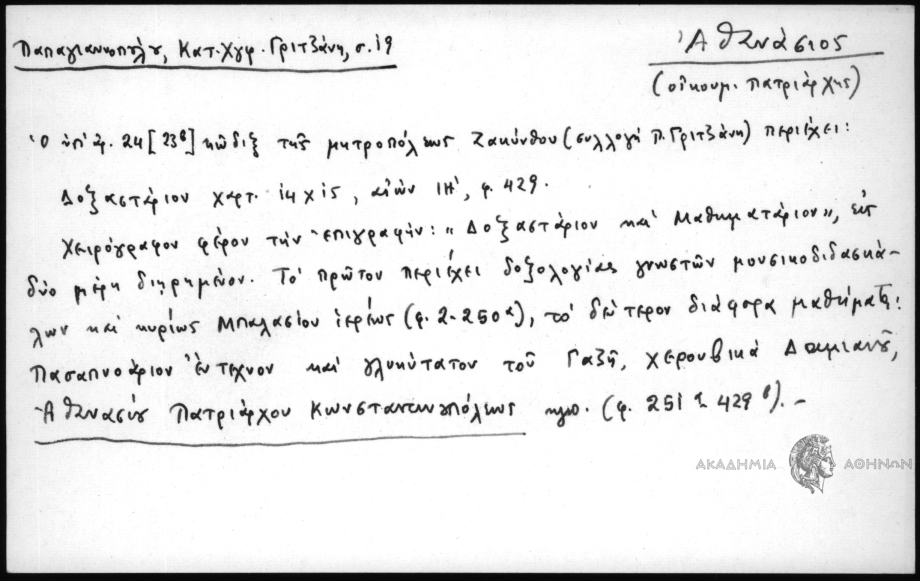 Παπαγιαννοπούλου, Κατ. Χγφ. Γριτζάνη, σ. 19
Ἀθανάσιος
(οἰκουμ. Πατριάρχης)
Ὁ ὑπ' ἀρ. 24 [23β] κῶδιξ τῆς μητροπόλεως Ζακύνθου (συλλογή Π. Γριτζάνη) περιέχει:
Δοξαστάριον χαρτ. 14 Χ 15, αἰών ΙΗ', φ. 429.
Χειρόγραφον φέρον τὴν ἐπιγραφήν: "Δοξαστάριον καὶ Μαθηματάριον", εἰς
δύο μέρη διῃρημένον. Τὸ πρῶτον περιέχει δοξολογίας γνωστῶν μουσικοδιδασκά-
λων καὶ κυρίως Μπαλασίου ἱερέως (φ. 2-250α), τὸ δεύτερον διάφορα μαθήματα:
Πασαπνοάριον ἔντεχνον καὶ γλυκύτατον τοῦ Γαζῆ, χερουβικὰ Δαμιανοῦ,
Ἀθανασίου Πατριάρχου Κωνσταντινουπόλεως (φ. 251 - 429β). –
ΑΚΑΔΗΜΙΑ ΑΘΗΝΩΝ